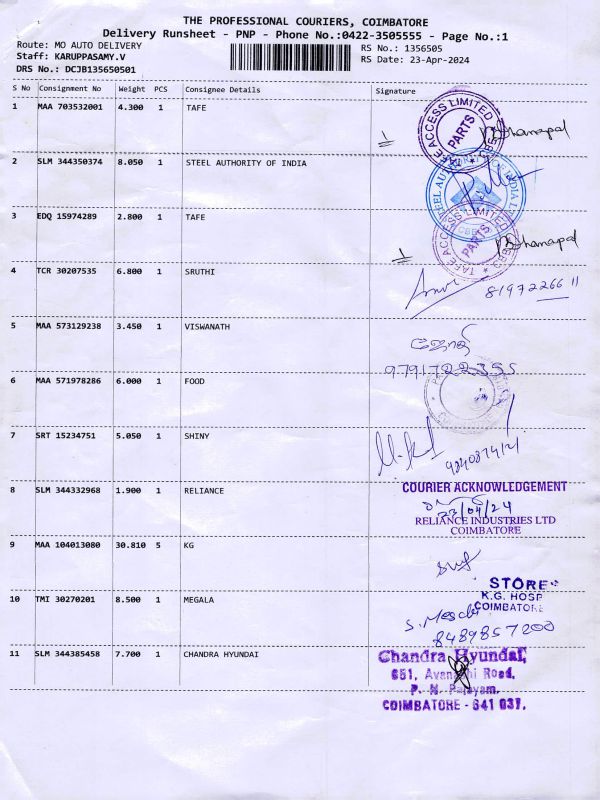 THE PROFESSIONAL COURIERS, COIMBATORE
Delivery Runsheet - PNP - Phone No.:0422-3505555 - Page No.:1
Route: MO AUTO DELIVERY
RS No.: 1356505
Staff: KARUPPASAMY.V
RS Date: 23-Apr-2024
DRS No.: DCJB135650501
S No Consignment No Weight PCS Consignee Details Signature
1 MAA 703532001 4.300 1 TAFE
TAFE ACCESS LIMITED
PARTS
Dhanapal
2 SLM 344350374 8.050 1 STEEL AUTHORITY OF INDIA
STEEL AUTHORITY OF INDIA LTD
3 EDQ 15974289 2.800 1 TAFE
TAFE ACCESS LIMITED
PARTS
Dhanapal
4 TCR 30207535 6.800 1 SRUTHI
8197226611
5 MAA 573129238 3.450 1 VISWANATH
9791722355
6 MAA 571978286 6.000 1 FOOD
7 SRT 15234751 5.050 1 SHINY
8 SLM 344332968 1.900 1 RELIANCE
COURIER ACKNOWLEDGEMENT
23/04/24
RELIANCE INDUSTRIES LTD
COIMBATORE
9 MAA 104013080 30.810 5 KG
STORES
K.G. HOSP
COIMBATORE
10 TMI 30270201 8.500 1 MEGALA
8489857200
11 SLM 344385458 7.700 1 CHANDRA HYUNDAI
Chandra Hyundai,
651, Avanashi Road,
P. N. Palayam,
COIMBATORE - 641 037.